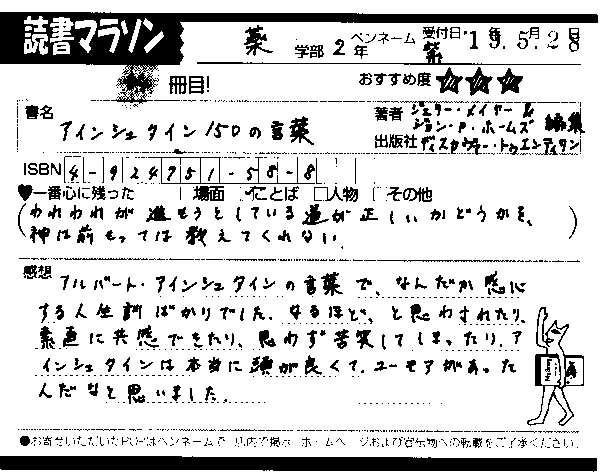 読書マラソン
薬 学部 2年 ペンネーム 受付日'19.5.28
冊目! おすすめ度 ☆☆☆
書名 アインシュタイン150の言葉
著者 ジェリー・メイヤー&ジョン・P・ホームズ 編集
出版社 ディスカヴァー・トゥエンティワン
ISBN 4-924751-58-8
♥一番心に残った 場面 ことば □人物 その他
(われわれが進もうとしている道が正しいかどうかを、
神は前もっては教えてくれない。)
感想 アルバート・アインシュタインの言葉で、なんだか感心
する人生訓ばかりでした。なるほど、と思わされたり、
素直に共感できたり、思わず苦笑してしまったり。ア
インシュタインは本当に頭が良くて、ユーモアがあった
んだなと思いました。
●お寄せいただいたPOPはペンネームで、店内で掲示・ホームページおよび宣伝物への転載をご了承ください。